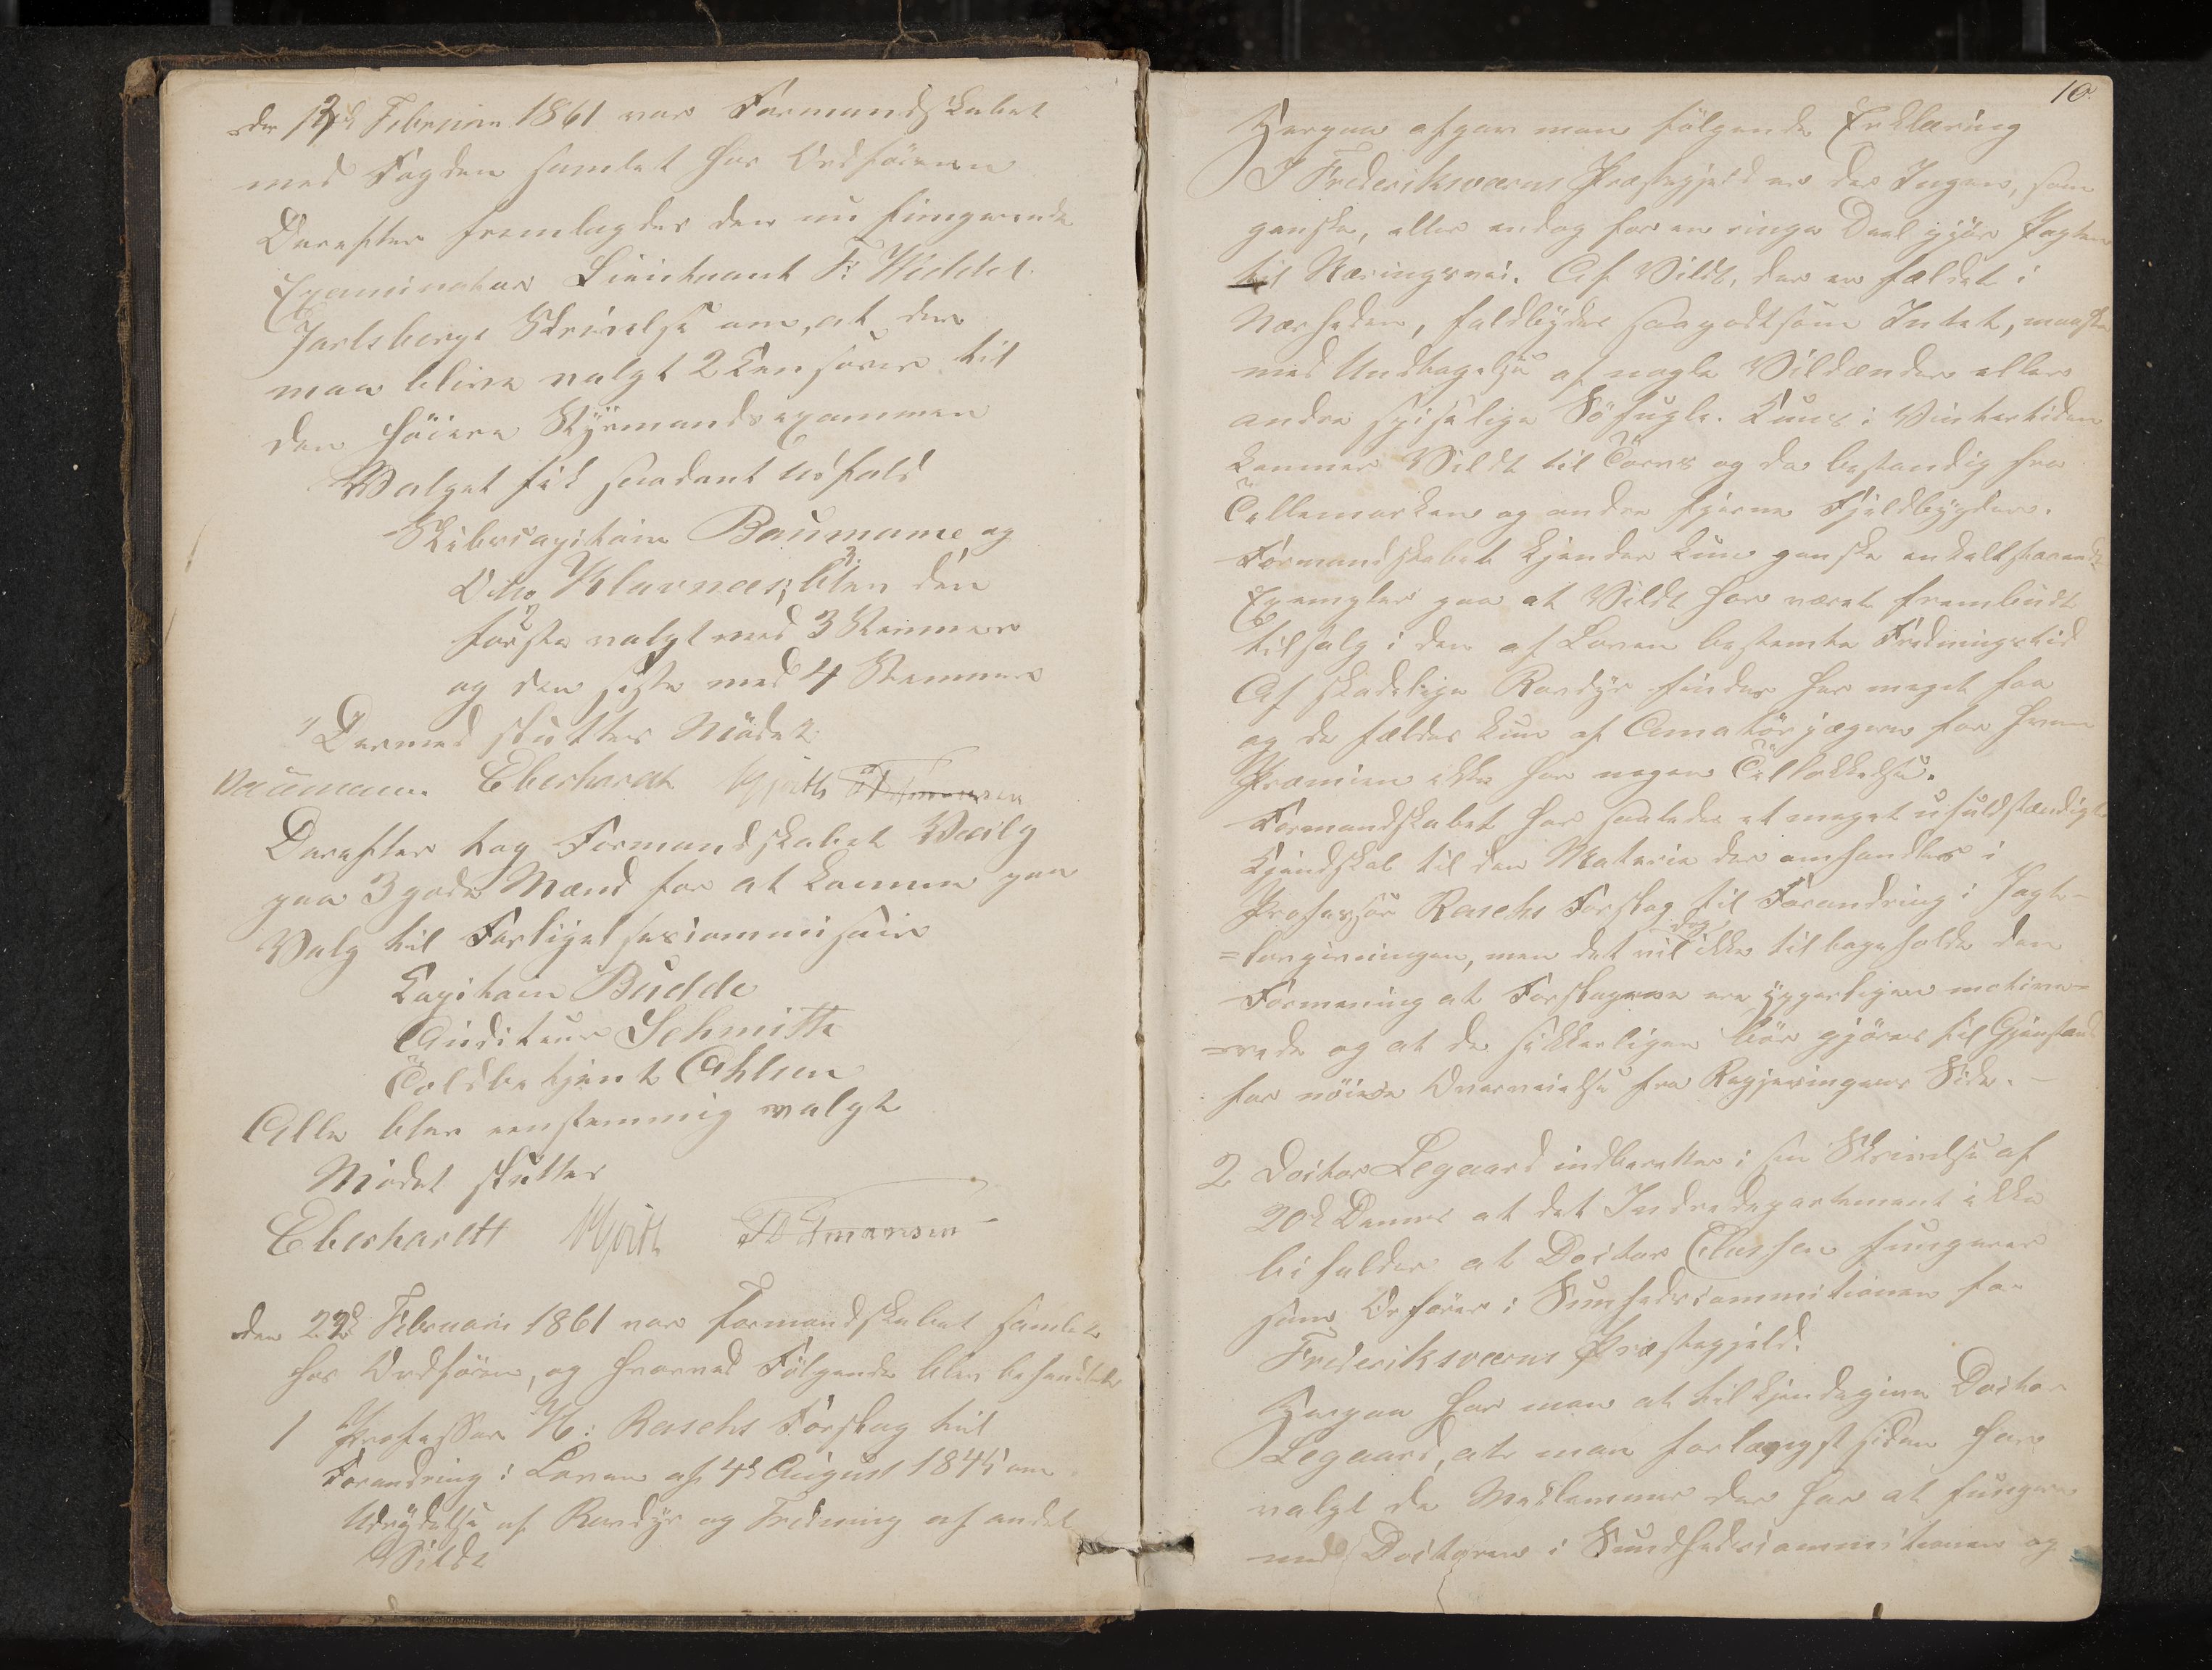 den 13de Februar 1861 var Formandskabet
med Fogden samlet hos Ordføreren
Derefter fremlagdes den nu fungerende
Examinator Lieutnant F: Weddel
Jarlsbergs Skrivelse om, at der
maa blive valgt 2 Censorer til
den høiere Styrmandsexammen
Valget fik saadant Udfald
Skibscapitain Baumann og
Otto Klavnæs, blev den
første valgt med 3 Stemmer
og den sidste med 4 Stemmer
Dermed sluttes Mødet
Baumann Eberhardt Hjorth
Derefter tog Formandskabet Valg
paa 3 gode Mænd for at komme paa
Valg til Forligelsescommisair
Capitain Budde
Auditeur Schmith
Toldbetjent Ahlsen
Alle blev eenstemmig valgt
Mødet sluttes
Eberhardt Hjorth
den 22de Februari 1861 var Formandskabet samlet
hos Ordføren, og hvorved Følgende blev behandlet
1 Professor H: Raschs Forslag til
Forandring i Loven af 4de August 1845 om
Udrydelse af Rovdyr og Fredning af andet
Vildt
10.
Herpaa afgav man følgende Erklæring
I Frederiksværns Præstegjeld er der Ingen, som
ganske, eller endog for en ringe Deel gjør Jagten
til Næringsvei. Af Vildt, der er fældet i
Nærheden, faldbydes saagodtsom Intet, maaske
med Undtagelse af nogle Vildænder eller
andre spiselige Søfugle. Kuns i Vintertiden
kommer Vildt til Torvs og da bestandig fra
Tellemarken og andre fjerne Fjeldbygder.
Formandskabet kjender kun ganske enkeltstaaende
Exempler paa at Vildt har været frembudt
tilsalg i den af Loven bestemte Fredningstid
Af skadelige Rovdyr findes her meget faa
og de fældes kun af Amatørjægere for hvem
Præmien ikke har nogen Tillokkelse.
Formandskabet har saaledes et meget ufuldstændigt
Kjendskab til den Materie der omhandles i
Professor Raschs Forslag til Forandring i Jagt-
=lovgivningen, men det vil dog ikke tilbageholde den
Formening at Forslagene ere ypperligen motive=
=rede og at de sikkerligen bør gjøres til Gjenstand
for nøiere Overveielse fra Regjeringens Side. –
2 Doctor Legaard indberetter i sin Skrivelse af
20de Dennes at det Indredepartement ikke
bifalder at Doctor Classen fungerer
som Ordfører i Sunhedscommitionen for
Frederiksværns Præstegjeld.
Herpaa har man at tilkjendegive Doctor
Legaard, at man forlængst siden har
valgt de Medlemmer der har at fungere
med Doctoren i Sundhedscommitionen og